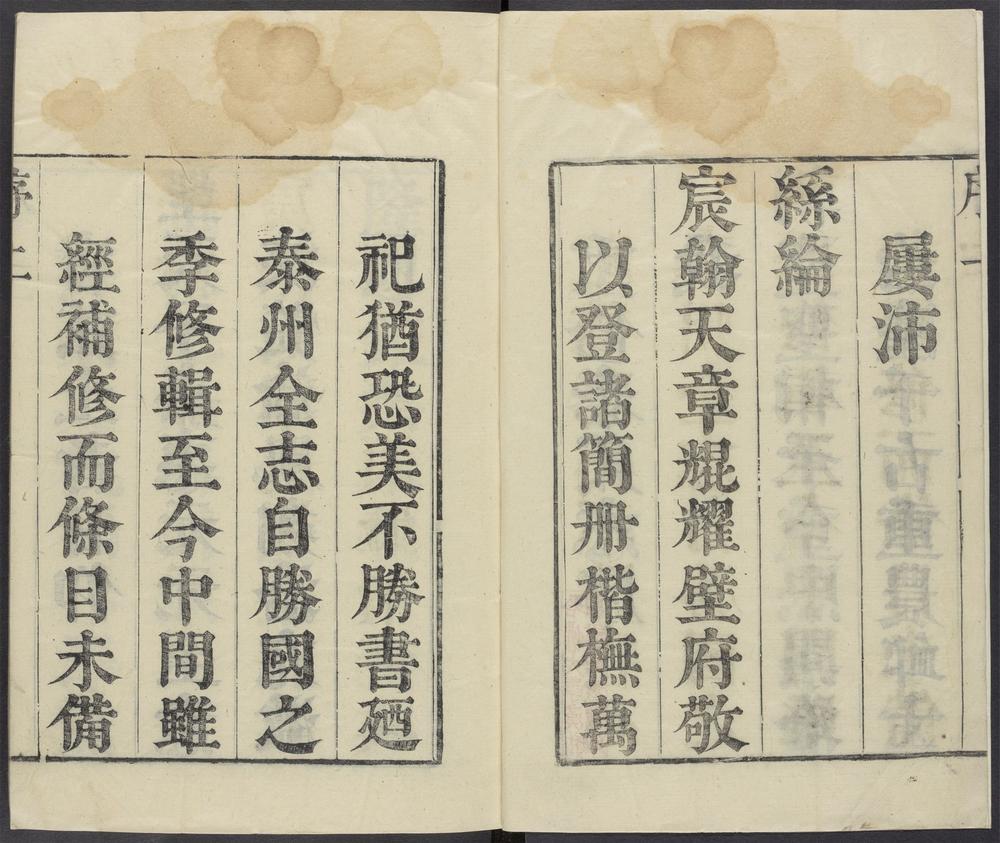 屢沛
絲綸
宸翰天章焜耀壁府敬
以登諸簡冊楷橅萬
祀猶恐美不勝書廼
泰州全志自勝國之
季修輯至今中間雖
經補修而條目未備